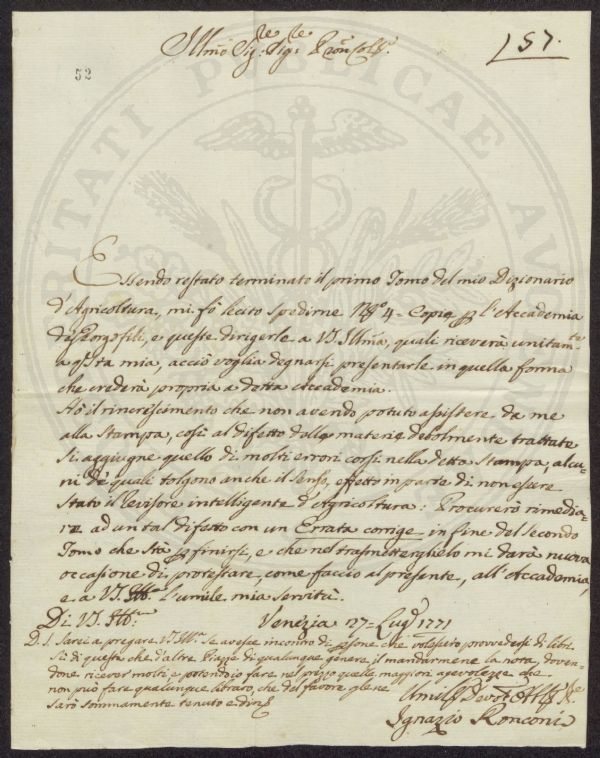 Illmo Sig: Sig: Pron Col
157.
52
Essendo restato terminato il primo Tomo del mio Dizionario
d'Agricoltura, mi fò lecito spedirne No 4 = Copie p l'Accademia
de Georgofili, e queste dirigerle a VS Illma, quali riceverà unitamte
a qsta mia, acciò voglia degnarsi presentarle in quella forma
che crederà propria a detta Accademia.
Hò il rincrescimento che non avendo potuto assistere da me
alla stampa, così al difetto delle materie debolmente trattate
si aggiugne quello di molti errori corsi nella detta stampa, alcu-
ni de quali tolgono anche il senso, effetto in parte di non essere
stato il Revisore intelligente d'Agricoltura: Procurerò rimedia-
re ad un tal difetto con un Errata corrige in fine del Secondo
Tomo che stà p finirsi, e che nel trasmetterglielo mi darà nuova
occasione di protestare, come faccio al presente, all'Accademia,
e a VS Illma l'umile mia servitù.
Di VS Illma
Venezia 27 = Lug 1771
P.S. Sarei a pregare VS Illma se avesse incontro di psone che volessero provvedersi di libri
sì di questa che d'altre Piazze di qualunque genere, il mandarmene la nota, doven-
done ricever molti, e potendo io fare nel prezzo quelle maggiori agevolezze che
non può fare qualunque libraro, che del favore gliene
sarò sommamente tenuto
Umil Devot
Ignazio Ronconi
RITATI PUBLICAE AUG